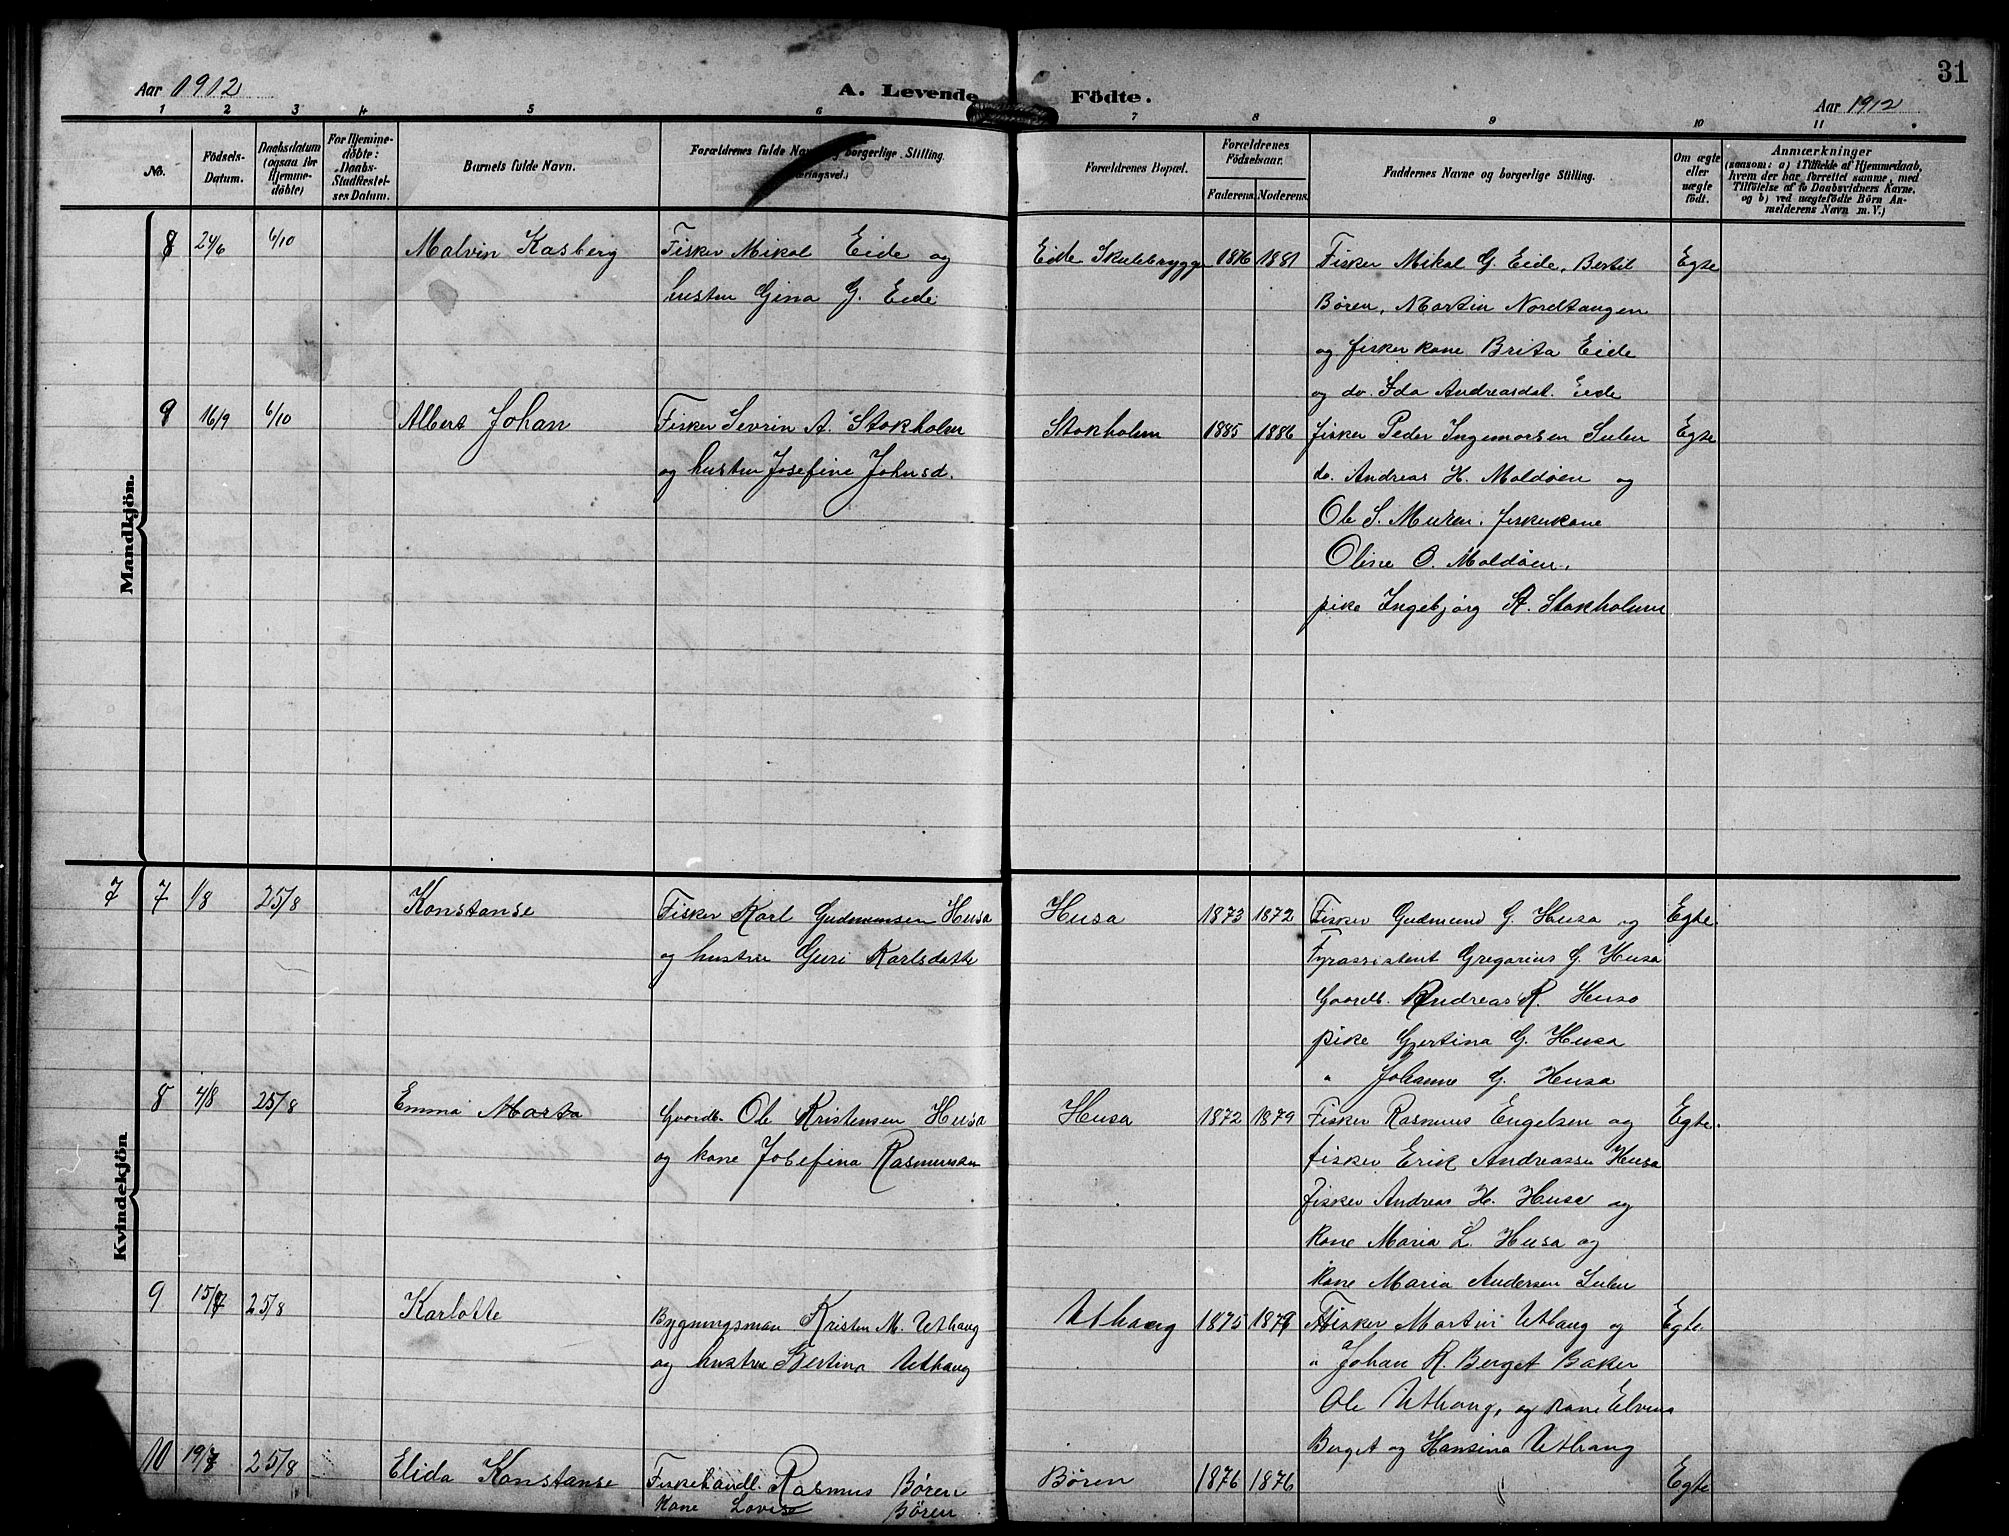 31
Aar 1912
A. Levende Födte.
Aar 1912
1 2 3 4 5 6 7 8 9 10 11
No.
Födsels-
Datum.
Daabsdatum
(ogsaa for
Hjemme-
döbte)
For Hjemme-
döbte:
Daabs-
Stadfæstel-
ses Datum.
Barnets fulde Navn.
Forældrenes fulde Navn og borgerlige Stilling
Forældrenes Bopæl.
Forældrenes
Födselsaar.
Faderens. Moderens.
Faddernes Navne og borgerlige Stilling.
Om ægte
eller
uægte
födt.
Anmærkninger
(saasom: a) i Tilfælde af Hjemmedaab,
hvem der har forrettet samme, med
Tilföielse af to Daabsvidners Navne,
og b) ved uægtefödte Börn An-
melderens Navn m. V.)
Mandkjön.
8 24/6 6/10 Malvin Kasberg
Fisker Mikal Eide og
hustru Gina G. Eide
Eide Skulebrygge 1876 1881
Fisker Mikal G. Eide, Bertil
Børen, Martin Nordtangen
og fiskerkone Brita Eide
og do. Ida Andreasdat. Eide
Egte
9 16/9 6/10 Albert Johan
Fisker Sevrin A. Stokholm
og hustru Josefine Johnsd.
Stokholm 1885 1886
fisker Peder Ingemorsen Sulen
do. Andreas H. Moldøen og
Ole S. Muren, fiskerkone
Oline O. Moldøen,
pike Ingebjørg A. Stokholm
Egte
Kvindekjön.
7 7 1/8 25/8 Konstanse
Fisker Karl Gudmunsen Husa
og hustru Guri Karlsdatte
Husa 1873 1872
Fisker Gudmund G. Husa og
Fyrassistent Gregorius G. Husa
Gaardb. Andreas R. Husa
pike Gjertina G. Husa
" Johanne G. Husa
Egte.
8 4/8 25/8 Emma Marta
Gaardb. Ole Kristensen Husa
og kone Josefina Rasmussen
Husa 1872 1879
Fisker Rasmus Engelsen og
fisker Erik Andreasse Husa
fisker Andreas H. Husa og
kone Maria L. Husa og
kone Maria Andersen Sulen
Egte.
9 15/7 25/8 Karlotte
Bygningsman Kristen M. Uthaug
og hustru Bertina Uthaug
Uthaug 1875
Fisker Martin Uthaug og
" Johan R. Berget Baker
Ole Uthaug, og kone Elvina
Berget og Hansina Uthaug
Egte.
10 19/7 25/8 Elida Konstanse
Fiskehandl. Rasmus Børen
Kone Lovise Børen
Børen 1876 1876
Egte